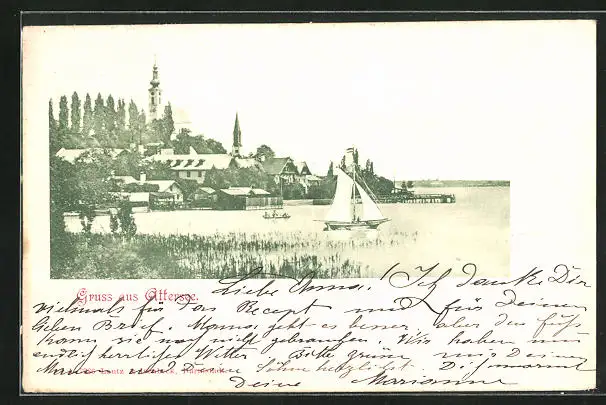 Gruss aus Attersee.
Liebe Anna! Ich danke Dir
vielmals für das Recept und für Deinen
lieben Brief. Mama geht es besser, aber den Fuß
kann sie noch nicht gebrauchen. Wir haben nun
endlich herrliches Wetter. Bitte grüße mir Deine
Mama und Deine herzlichst.
Deine Marianne